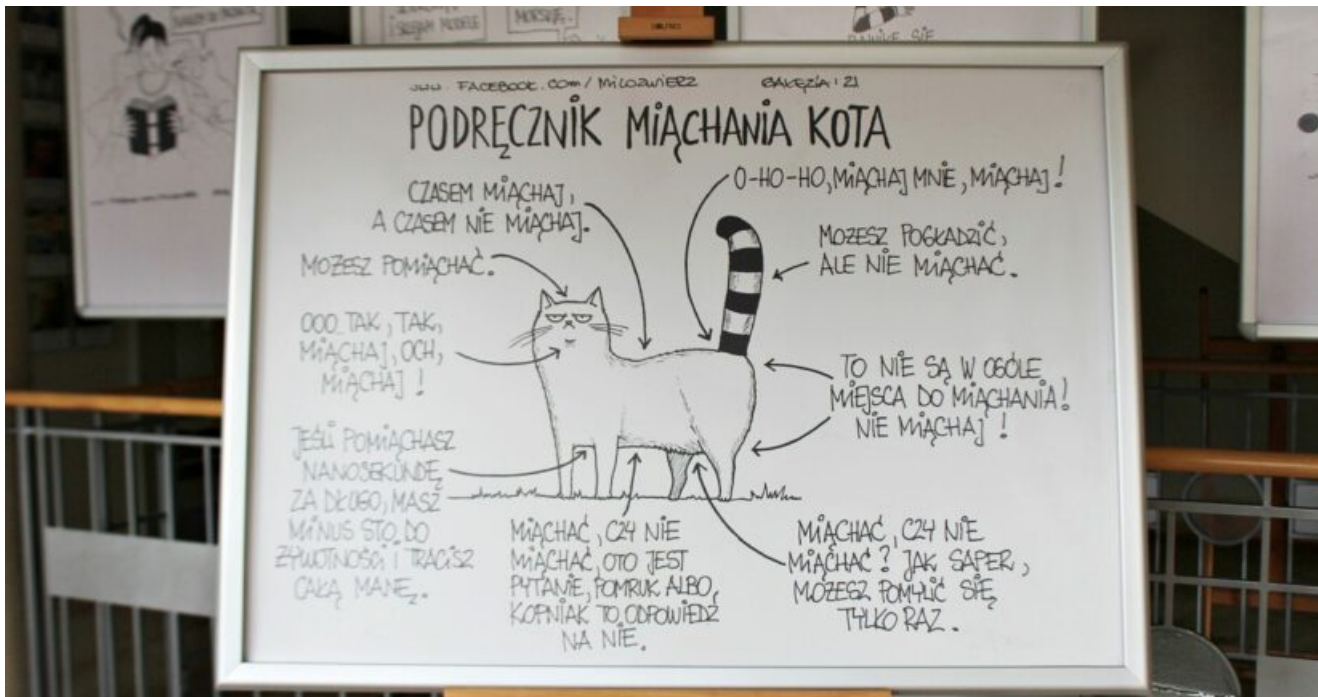 www. FACEBOOK.COM/MILOZWIERZ GAŁĘZIA '21
PODRĘCZNIK MIĄCHANIA KOTA
CZASEM MIĄCHAJ,
A CZASEM NIE MIĄCHAJ.
O-HO-HO, MIĄCHAJ MNIE, MIĄCHAJ!
MOŻESZ POMIĄCHAĆ.
MOŻESZ POGŁADZIĆ,
ALE NIE MIĄCHAĆ.
OOO TAK, TAK,
MIĄCHAJ, OCH,
MIĄCHAJ!
TO NIE SĄ W OGÓLE
MIEJSCA DO MIĄCHANIA!
NIE MIĄCHAJ!
JEŚLI POMIĄCHASZ
NANOSEKUNDĘ
ZA DŁUGO, MASZ
MINUS STO DO
ŻYWOTNOŚCI I TRACISZ
CAŁĄ MANĘ.
MIĄCHAĆ, CZY NIE
MIĄCHAĆ, OTO JEST
PYTANIE, POMRUK ALBO
KOPNIAK TO ODPOWIEDŹ
NA NIE.
MIĄCHAĆ, CZY NIE
MIĄCHAĆ? JAK SAPER,
MOŻESZ POMYLIĆ SIĘ
TYLKO RAZ.
I SLEJAM MODELE
MORSKIE.